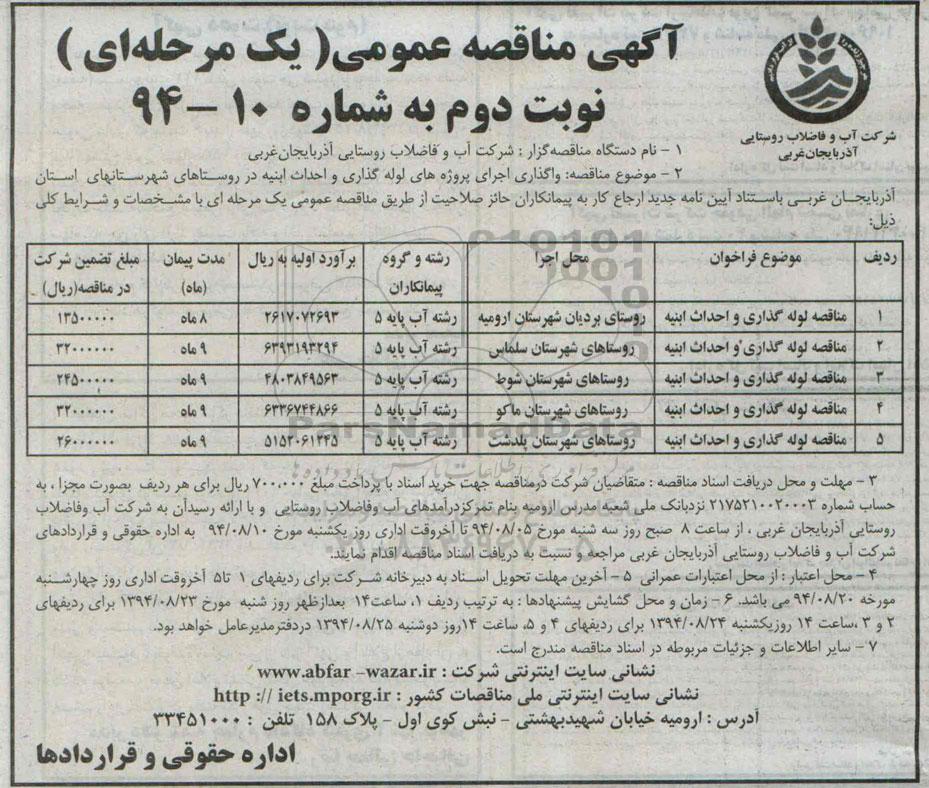 آگهی مناقصه عمومی( یک مرحله‌ای )
نوبت دوم به شماره ۱۰ – ۹۴
شرکت آب و فاضلاب روستایی
آذربایجان‌غربی
۱ – نام دستگاه مناقصه‌گزار : شرکت آب و فاضلاب روستایی آذربایجان‌غربی
۲ – موضوع مناقصه: واگذاری اجرای پروژه های لوله گذاری و احداث ابنیه در روستاهای شهرستانهای استان
آذربایجان غربی باستناد آیین نامه جدید ارجاع کار به پیمانکاران حائز صلاحیت از طریق مناقصه عمومی یک مرحله ای با مشخصات و شرایط کلی
ذیل:
ردیف موضوع فراخوان محل اجرا رشته و گروه پیمانکاران برآورد اولیه به ریال مدت پیمان (ماه) مبلغ تضمین شرکت در مناقصه(ریال)
۱ مناقصه لوله گذاری و احداث ابنیه روستای بردیان شهرستان ارومیه رشته آب پایه ۵ ۲۶۱۷۰۷۲۶۹۳ ۸ ماه ۱۳۵۰۰۰۰۰۰
۲ مناقصه لوله گذاری و احداث ابنیه روستاهای شهرستان سلماس رشته آب پایه ۵ ۶۳۹۳۱۹۳۲۹۴ ۹ ماه ۳۲۰۰۰۰۰۰۰
۳ مناقصه لوله گذاری و احداث ابنیه روستاهای شهرستان شوط رشته آب پایه ۵ ۴۸۰۳۸۴۹۵۶۳ ۹ ماه ۲۴۵۰۰۰۰۰۰
۴ مناقصه لوله گذاری و احداث ابنیه روستاهای شهرستان ماکو رشته آب پایه ۵ ۶۳۳۶۷۴۴۸۶۶ ۹ ماه ۳۲۰۰۰۰۰۰۰
۵ مناقصه لوله گذاری و احداث ابنیه روستاهای شهرستان پلدشت رشته آب پایه ۵ ۵۱۵۲۰۶۱۳۴۵ ۹ ماه ۲۶۰۰۰۰۰۰۰
ParsNamadData
۳ – مهلت و محل دریافت اسناد مناقصه : متقاضیان شرکت درمناقصه جهت خرید اسناد با پرداخت مبلغ ۷۰۰.۰۰۰ ریال برای هر ردیف بصورت مجزا ، به
حساب شماره ۲۱۷۵۲۱۰۰۲۰۰۰۳ نزدبانک ملی شعبه مدرس ارومیه بنام تمرکزدرآمدهای آب وفاضلاب روستایی و با ارائه رسیدآن به شرکت آب وفاضلاب
روستایی آذربایجان غربی ، از ساعت ۸ صبح روز سه شنبه مورخ ۹۴/۰۸/۰۵ تا آخروقت اداری روز یکشنبه مورخ ۹۴/۰۸/۱۰ به اداره حقوقی و قراردادهای
شرکت آب و فاضلاب روستایی آذربایجان غربی مراجعه و نسبت به دریافت اسناد مناقصه اقدام نمایند.
۴ – محل اعتبار : از محل اعتبارات عمرانی ۵ – آخرین مهلت تحویل اسناد به دبیرخانه شرکت برای ردیفهای ۱ تا۵ آخروقت اداری روز چهارشنبه
مورخه ۹۴/۰۸/۲۰ می باشد. ۶ – زمان و محل گشایش پیشنهادها : به ترتیب ردیف ۱، ساعت۱۴ بعدازظهر روز شنبه مورخ ۱۳۹۴/۰۸/۲۳ برای ردیفهای
۲ و ۳ ،ساعت ۱۴ روزیکشنبه ۱۳۹۴/۰۸/۲۴ برای ردیفهای ۴ و ۵، ساعت ۱۴روز دوشنبه ۱۳۹۴/۰۸/۲۵ دردفترمدیرعامل خواهد بود.
۷ – سایر اطلاعات و جزئیات مربوطه در اسناد مناقصه مندرج است.
نشانی سایت اینترنتی شرکت : www.abfar –wazar.ir
نشانی سایت اینترنتی ملی مناقصات کشور : http :// iets.mporg.ir
آدرس : ارومیه خیابان شهیدبهشتی – نبش کوی اول – پلاک ۱۵۸ تلفن : ۳۳۴۵۱۰۰۰
اداره حقوقی و قراردادها